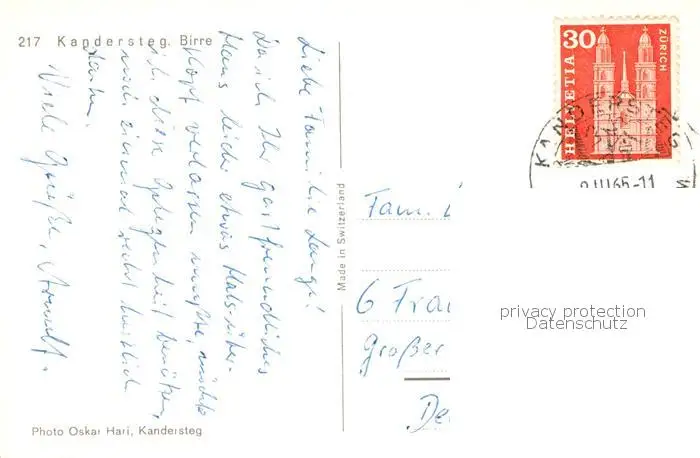 217 Kandersteg. Birre
Liebe Familie Lange!
Da ich Ihr gastfreundliches
Haus leider etwas Hals-über-
Kopf verlassen mußte, möchte
ich diese Gelegenheit benützen,
mich einmal recht herzlich
danken.
Viele Grüße,
Photo Oskar Hari, Kandersteg
Made in Switzerland
HELVETIA
30
ZÜRICH
KANDERSTEG
III 65-11
Fam.
6 Fra
Großer
De
privacy protection
Datenschutz